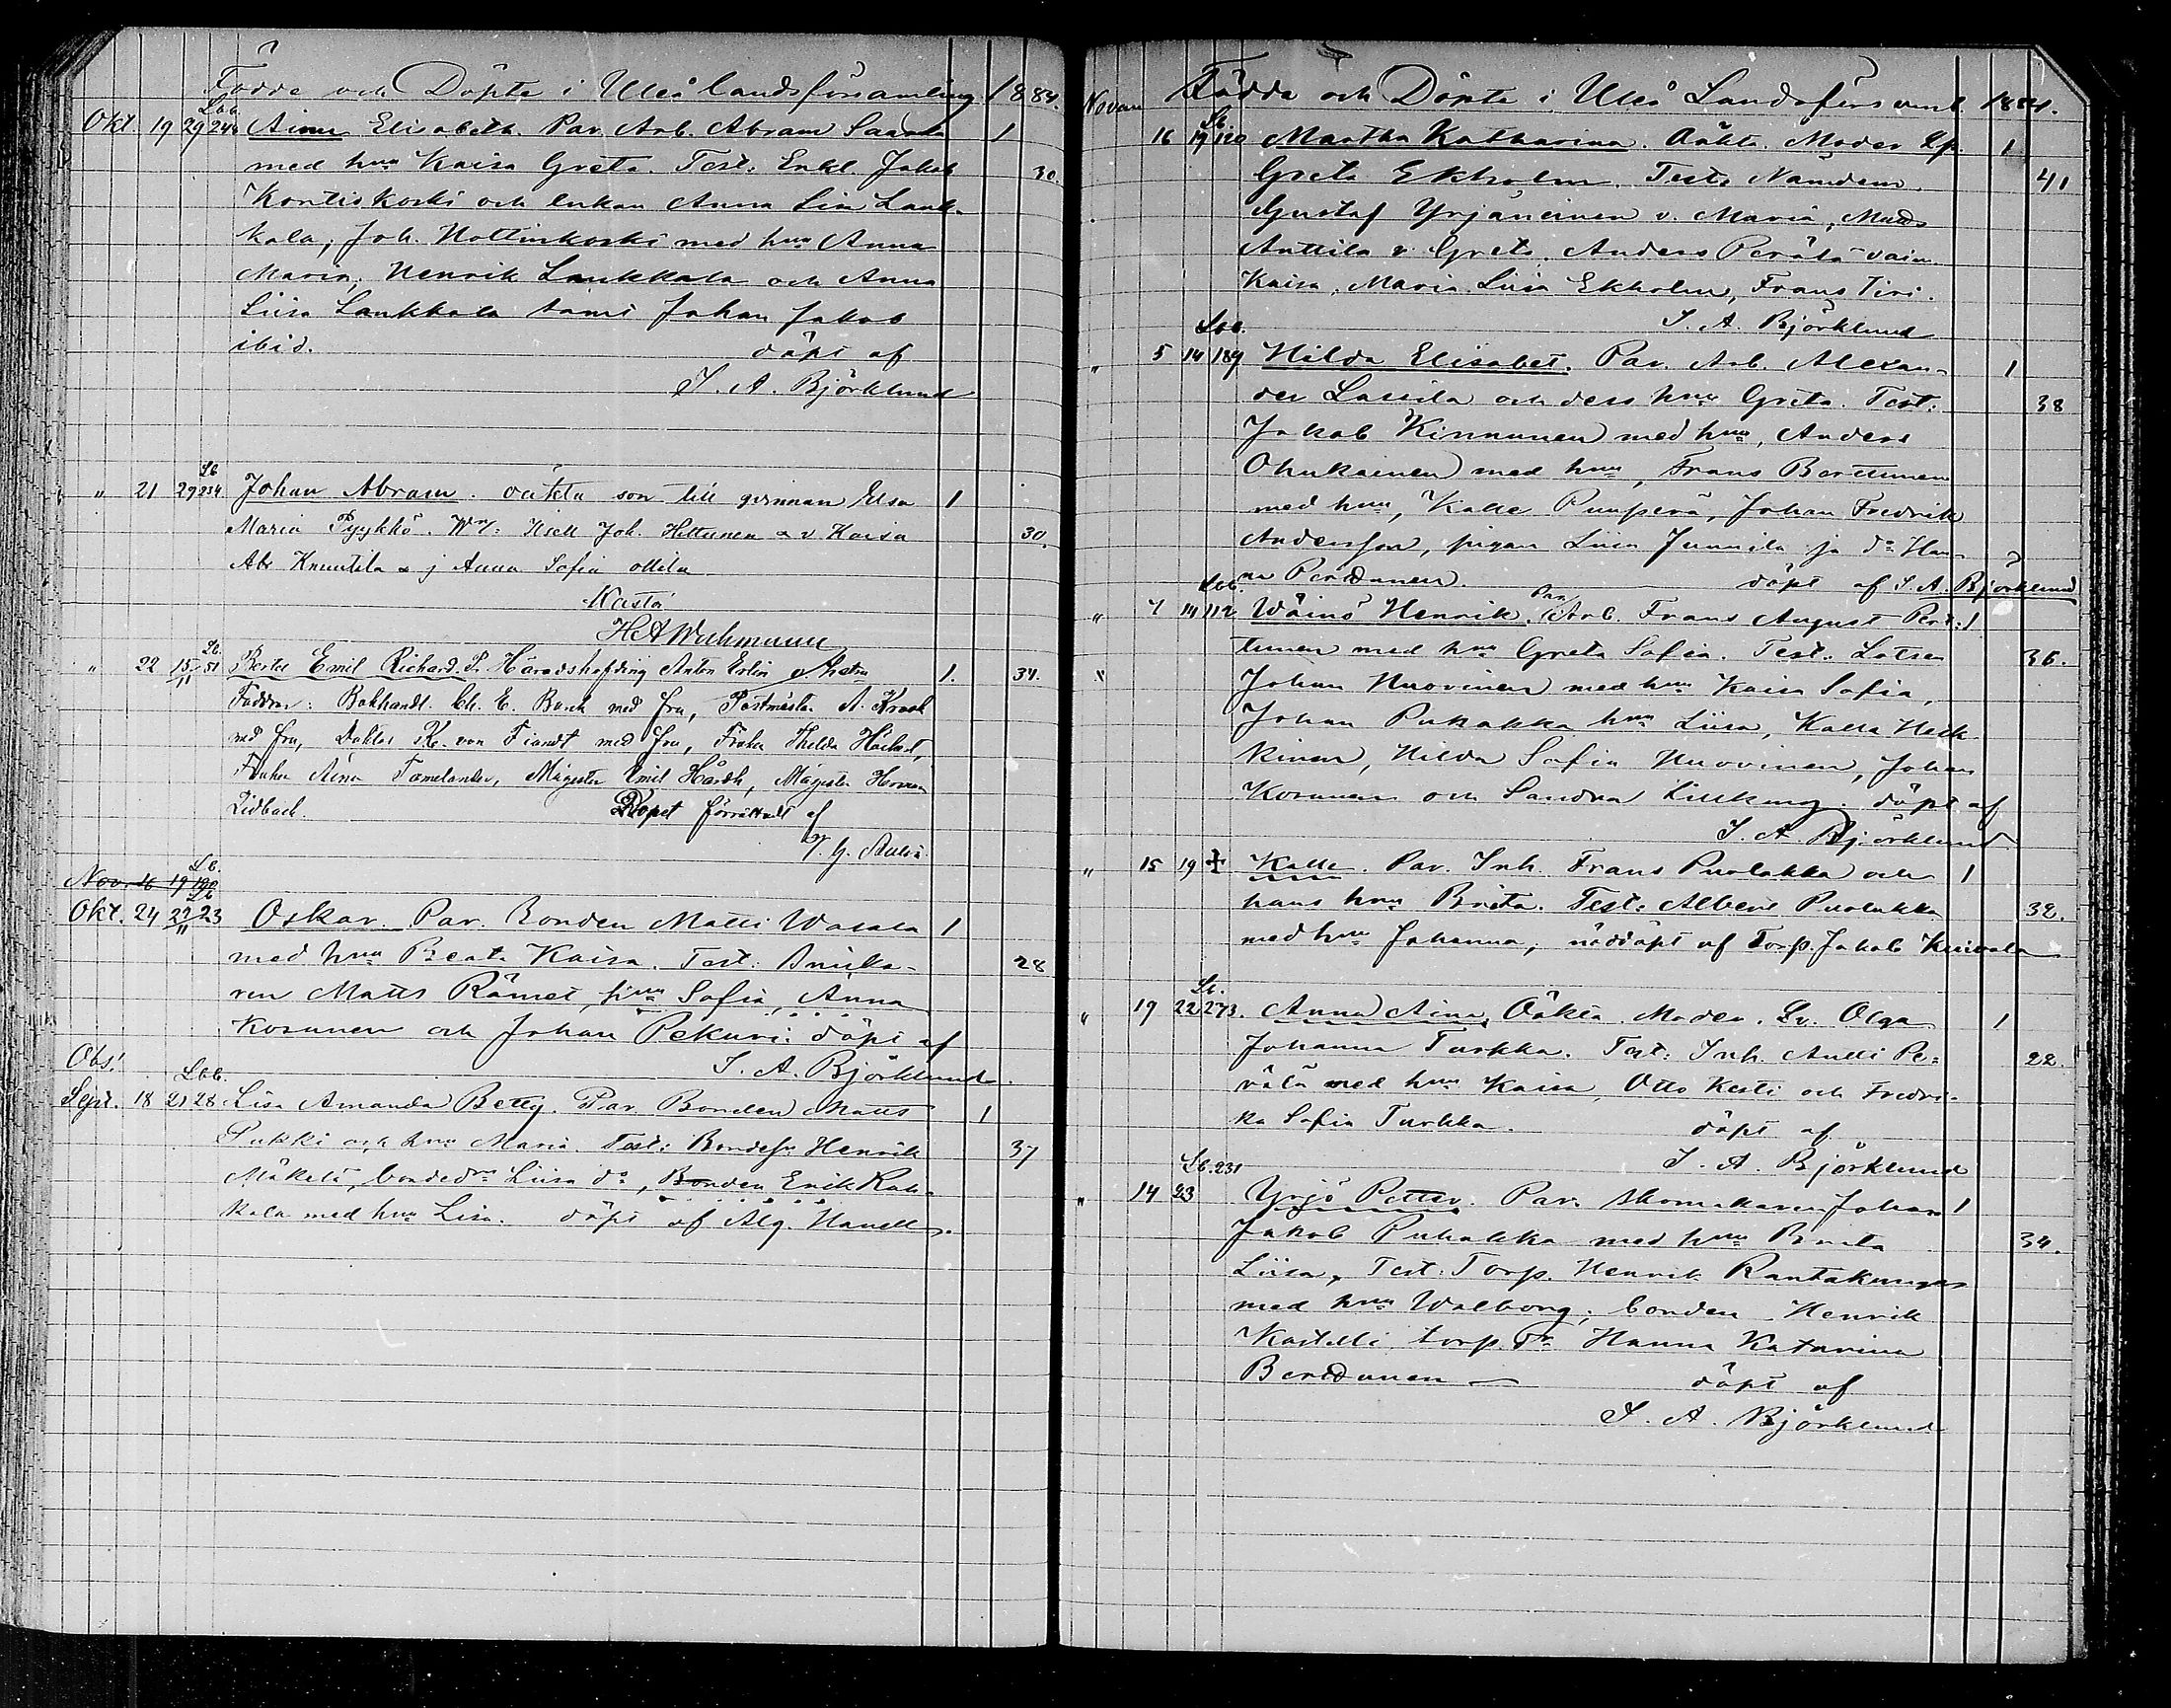 Födde och Döpte i Uleå landsförsamling 1884.
Lbb.
Okt. 19 29 244 Aina Elisabeth. Par. Arb. Abram 1
med hru Kaisa Greta. Test: Enkl. Jakob 30.
Kontiskoski och enkan Anna Lisa Lauk-
kala, Joh. Hottinkoski med hru Anna
Maria, Henrik Laukkala och Anna
Liisa Laukkala samt Johan Jakob
ibid. döpt af
J. A. Björklund
Lb
" 21 29 234 Johan Abram. oäkta son till qvinnan Elsa 1
Maria Pyykkö. Joh. Hiltunen & v Kaisa 30.
Abr Knuutila & j Anna Sofia
Kastoi
H A
Lb.
" 22 15/11 51 Bertel Emil Richard. P. Häradshöfding Anton 1. 34.
Faddrar: Bokhandl. Ch. E. Barck med fru, Postmästar A. Kraak
med fru, Doktor K. von Fiandt med fru, Fröken Hilda
Fröken Aina Tamelander, Magister Emil Hårdh, Magister Herman
Lidbäck. Dopet förrättadt af
Lb.
Nov. 16 19 190
Lb
Okt. 24 22/11 23 Oskar. Par. Bonden Matti Wasala 1
med hru Beata Kaisa. Test: Snicka- 28
ren Matts Rämet, hru Sofia, Anna
Kosunen och Johan Pekuri. döpt af
Obs! J. A. Björklund.
Lbb.
Sept. 18 21 28 Lisa Amanda Betty. Par. Bonden Matts 1
Pukki och hru Maria. Test: Bondes. Henrik 37
Mäkelä, bonded. Liisa do, Bonden Erik Rau-
kala med hru Lisa. döpt af Alg. Hanell.
Novem Födda och Döpte i Uleå Landsförsaml. 1884.
Lb.
16 19 190 Martha Katharina. Oäkta. Moder Lp. 1
Greta Ekholm. Test: Nämdem. 41
Gustaf Yrjäneinen v. Maria, Matts
Anttila v. Greta, Anders Perälä vaim.
Kaisa, Maria Liisa Ekholm, Frans Tiri.
J. A. Björklund
Lbb.
" 5 14 189 Hilda Elisabet. Par. Arb. Alexan- 1
der Lassila och dess hru Greta. Test: 38
Jakob Kinnunen med hru, Anders
Ohukainen med hru, Frans Berttunen
med hru, Kalle Puuperä, Johan Fredrik
Andersson, pigan Liisa Junnila ja do Han-
na Perdunen. döpt af J. A. Björklund
Lbb.
" 7 14 112 Wäinö Henrik. Par. Arb. Frans August Pert- 1
tunen med hru Greta Sofia. Test: Lotsen 36.
Johan Huovinen med hru Kaisa Sofia,
Johan Puhakka hru Liisa, Kalla Heik-
kinen, Hilda Sofia Huovinen, Johan
Korunen och Sandra Lillkung. döpt af
J. A. Björklund
" 15 19 ‡ Kalle. Par. Inh. Frans Puolakka och 1
hans hru Brita. Test: Albert Puolakka 32.
med hru Johanna, nöddöpt af Torp. Jakob Kuivala
Lb.
" 19 22 273. Anna Aina, Oäkta. Moder. Lv. Olga 1
Johanna Turkka. Test: Inh. Antti Pe- 22.
rälä med hru Kaisa, Otto Kesti och Fredri-
ka Sofia Turkka. döpt af
J. A. Björklund
Lb. 231
" 14 23 Yrjö Petter. Par. Skomakaren Johan 1
Jakob Puhakka med hru Brita 34.
Liisa. Test: Torp. Henrik Rantakangas
med hru Walborg, bonden Henrik
Kastelli, torp. dr. Hanna Katarina
Berddunen döpt af
J. A. Björklund